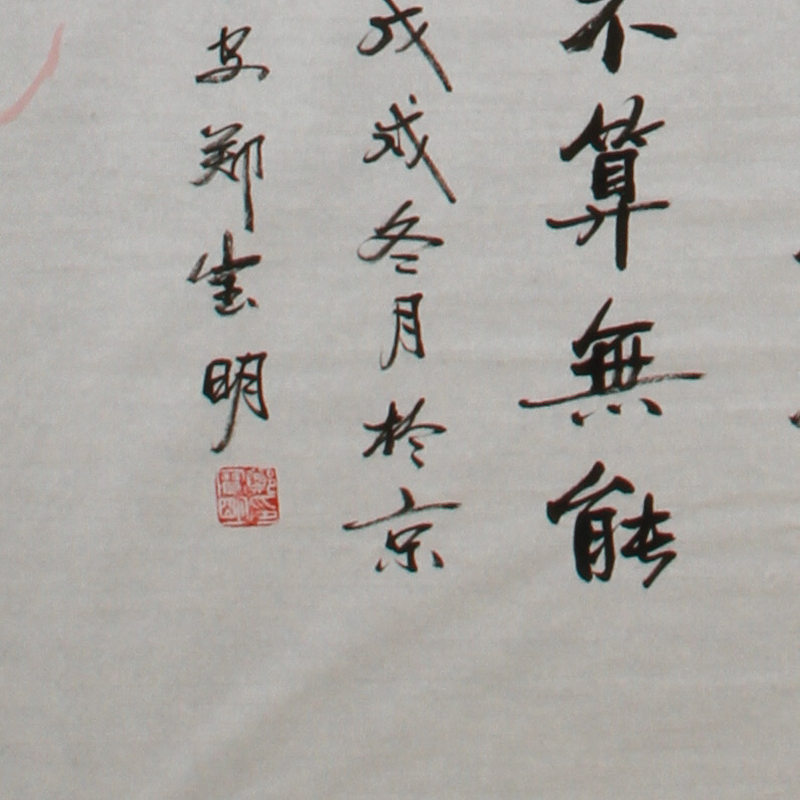 不算無能
戊戌冬月於京
安鄭宝明